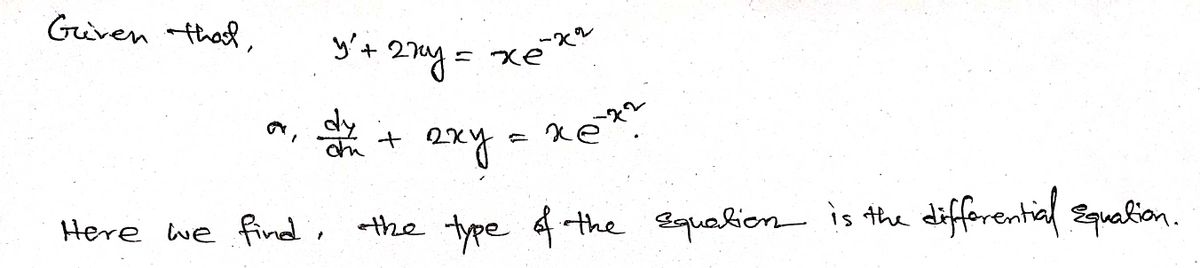 Given that, y' + 2xy = xe^{-x^2}
or, dy/dx + 2xy = xe^{-x^2}.
Here we find, the type of the equation is the differential equation.